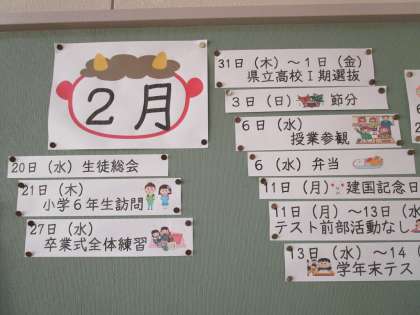 2月
31日（木）～1日（金）
県立高校Ⅰ期選抜
3日（日） 節分
6日（水）
授業参観
6（水）弁当
11日（月） 建国記念日
11日（月）～13日（水
テスト前部活動なし
13日（水）～14（
学年末テス
20日（水）生徒総会
21日（木）
小学6年生訪問
27日（水）
卒業式全体練習